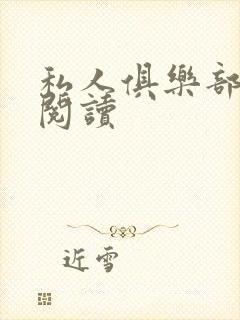 私人俱樂部
閱讀
近雪